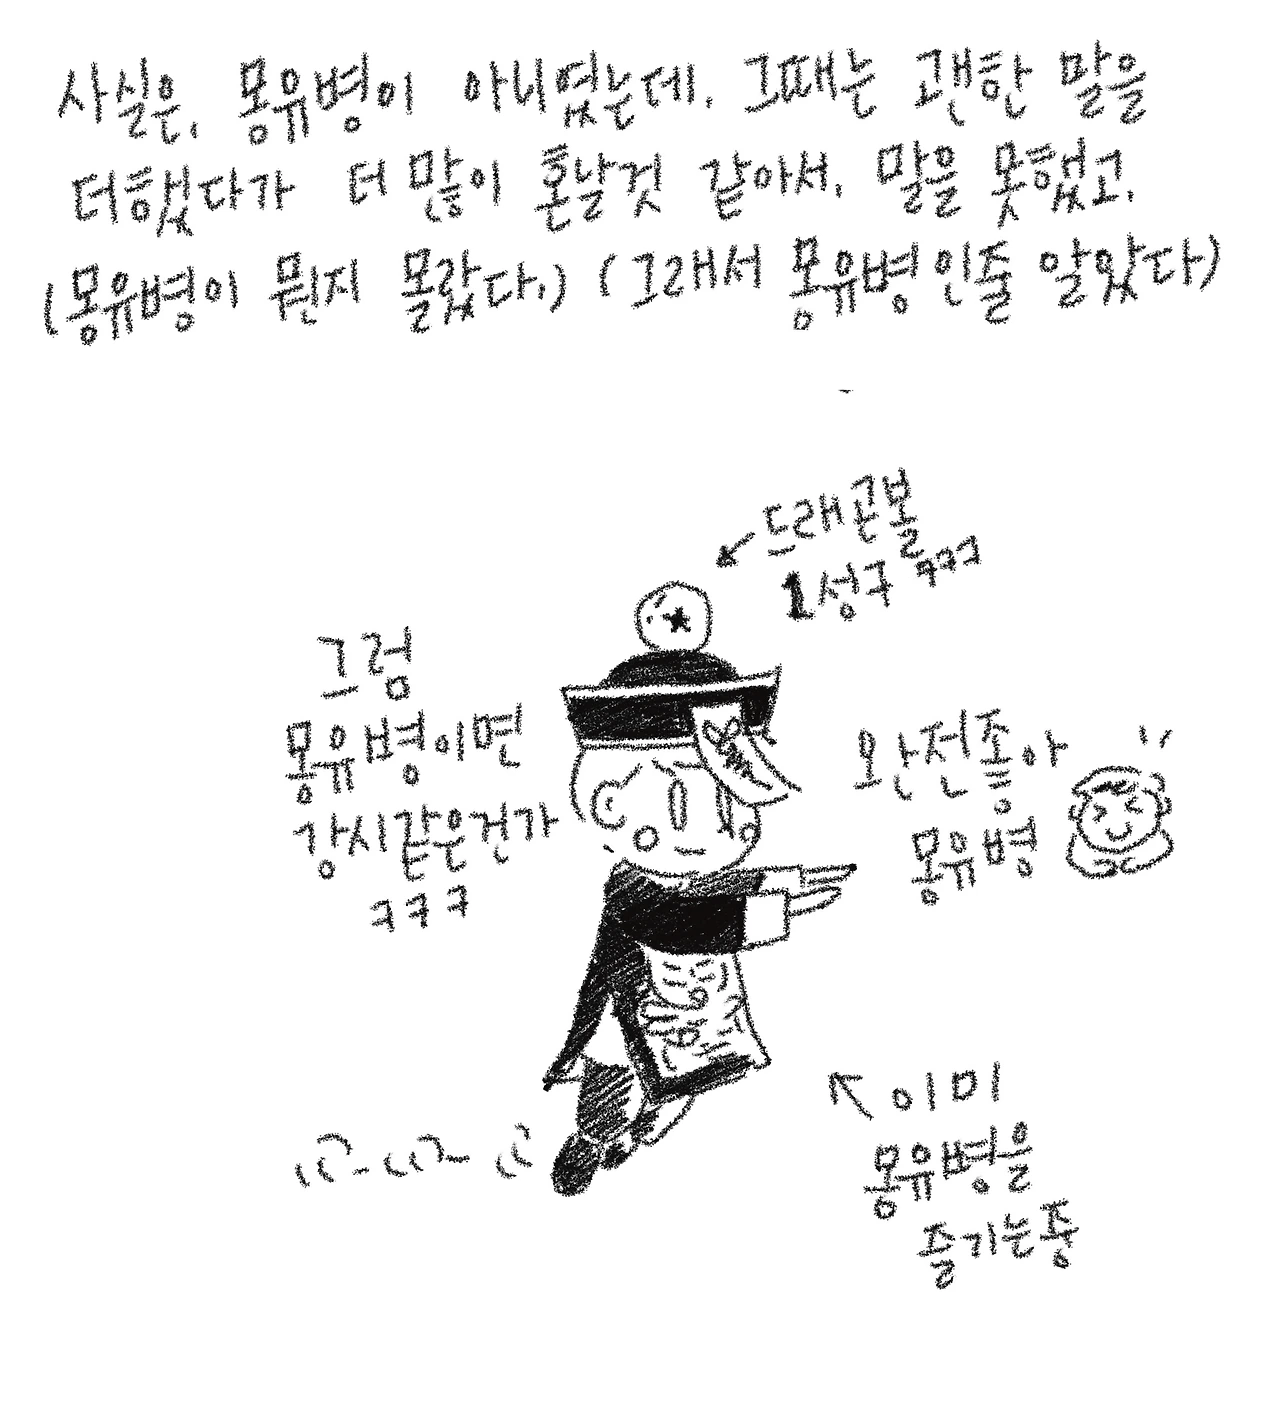 사실은, 몽유병이 아니였는데, 그때는 괜한 말을
더했다가 더 많이 혼날것 같아서, 말을 못했고,
(몽유병이 뭔지 몰랐다.) (그래서 몽유병인줄 알았다)
드래곤볼
1성구 ㅋㅋㅋ
그럼
몽유병이면
강시같은건가
ㅋㅋㅋ
완전좋아
몽유병
이미
몽유병을
즐기는중